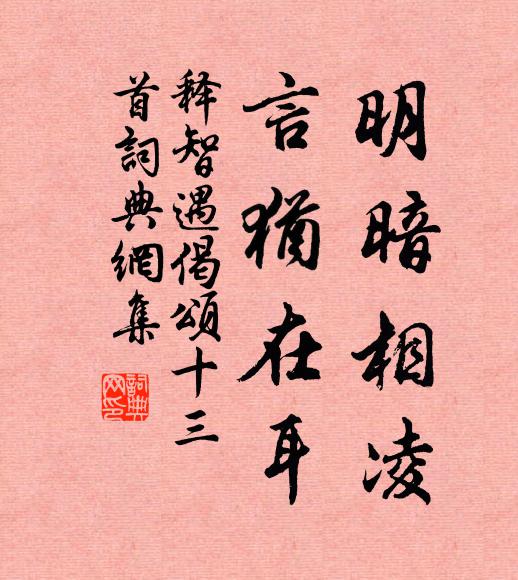 明暗相凌
言猶在耳
释智遇偈頌十三
首詞典網集
詞典
网印